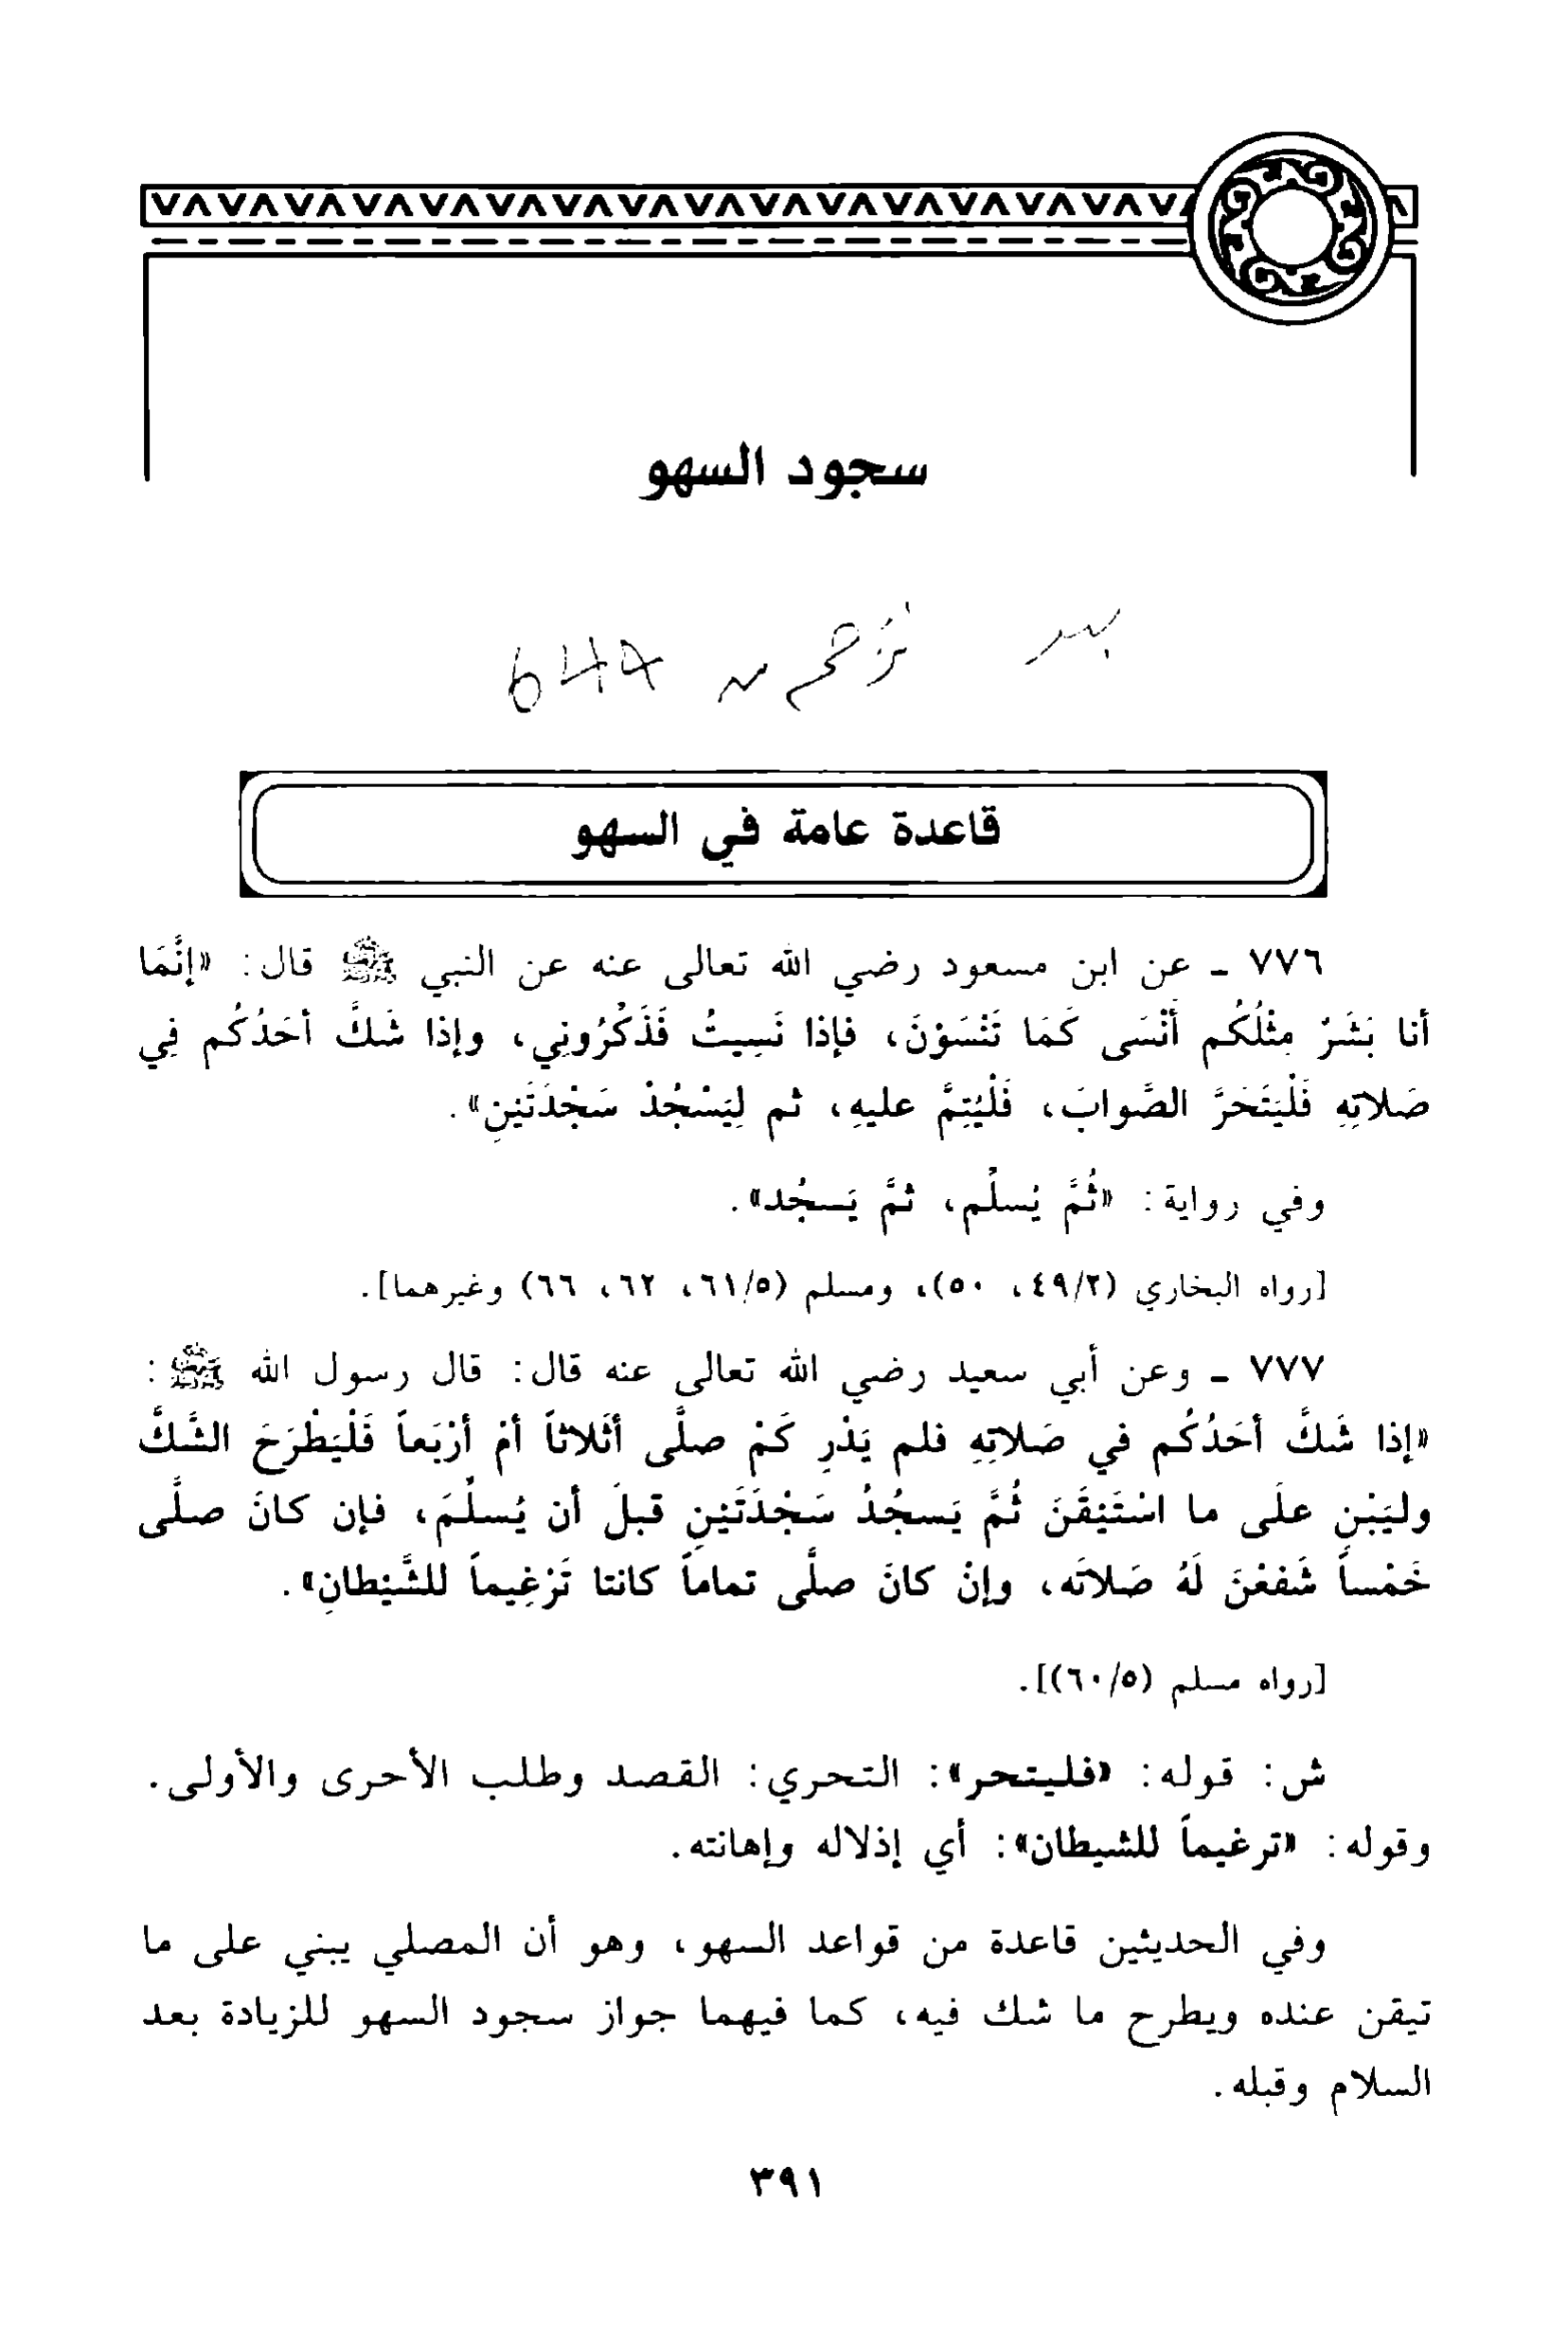 سجود السهو
قاعدة عامة في السهو
٧٧٦ ـ عن ابن مسعود رضي الله تعالى عنه عن النبي ﷺ قال: «إنَّمَا
أنا بَشَرٌ مِثْلُكُم أَنْسَى كَمَا تَنْسَوْنَ، فإذا نَسِيتُ فَذَكِّرُوني، وإذا شَكَّ أحَدُكُم فِي
صَلاتِهِ فَلْيَتَحَرَّ الصَّوابَ، فَلْيُتِمَّ عليهِ، ثم لِيَسْجُدْ سَجْدَتَيْنِ».
وفي رواية: «ثُمَّ يُسلِّم، ثمَّ يَسجُد».
[رواه البخاري (٤٩/٢، ٥٠)، ومسلم (٦١/٥، ٦٢، ٦٦) وغيرهما].
٧٧٧ ـ وعن أبي سعيد رضي الله تعالى عنه قال: قال رسول الله ﷺ:
«إذا شَكَّ أحَدُكُم في صَلاتِهِ فلم يَدْرِ كَمْ صلَّى أثَلاثاً أمْ أرْبَعاً فَلْيَطْرَحَ الشَّكَّ
وليَبْنِ علَى ما اسْتَيْقَنَ ثُمَّ يَسجُدُ سَجْدَتَيْنِ قبلَ أن يُسلِّمَ، فإن كانَ صلَّى
خَمْساً شَفَعْنَ لَهُ صَلاتَه، وإنْ كانَ صلَّى تماماً كانتا تَرْغِيماً للشَّيْطانِ».
[رواه مسلم (٦٠/٥)].
ش: قوله: «فليتحر»: التحري: القصد وطلب الأحرى والأولى.
وقوله: «ترغيماً للشيطان»: أي إذلاله وإهانته.
وفي الحديثين قاعدة من قواعد السهو، وهو أن المصلي يبني على ما
تيقن عنده ويطرح ما شك فيه، كما فيهما جواز سجود السهو للزيادة بعد
السلام وقبله.
٣٩١